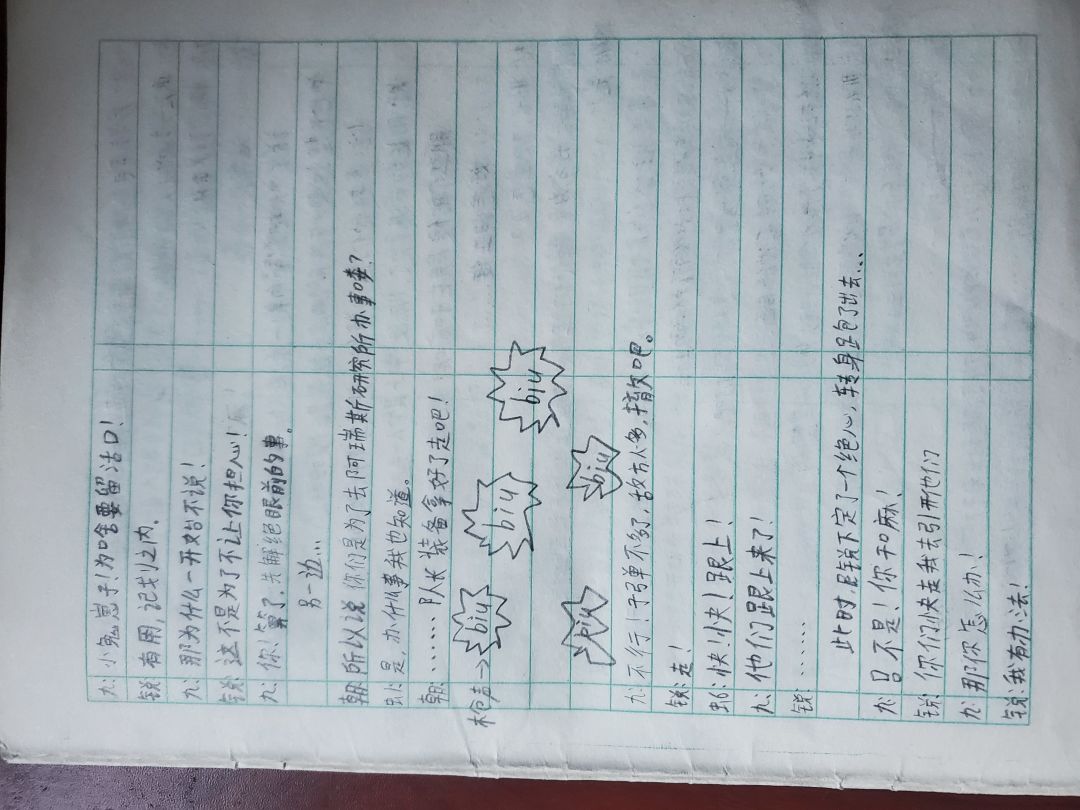 九:小兔崽子!为啥要留活口!
锐:有用,记划之内。
九:那为什么一开始不说!
锐:这不是为了不让你担心!
九:你、算了,先解绝眼前的事。
另一边...
朝:所以说你们是为了去阿瑞斯研究所办事喽?
虫八:是,办什么事我也知道。
朝:……队长装备拿好了走吧!
枪声→ biu biu biu
biu biu
九:不行!子弹不多了,敌方人多,撤吧。
锐:走!
虫6:快!快!跟上!
九:他们跟上来了!
锐:……
此时,锐下定了一个绝心,转身跑了出去...
九:不是!你干嘛!
锐:你们快走我去引开他们
九:那你怎么办!
锐:我有办法!